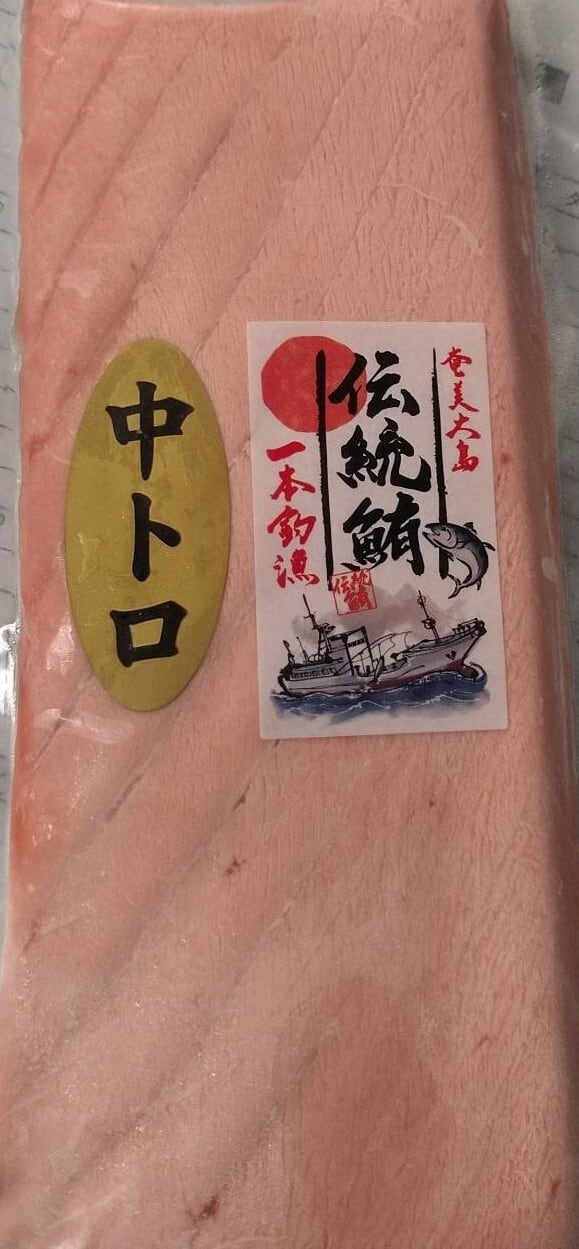 中トロ
奄美大島
伝統鮪
一本釣漁
伝統鮪